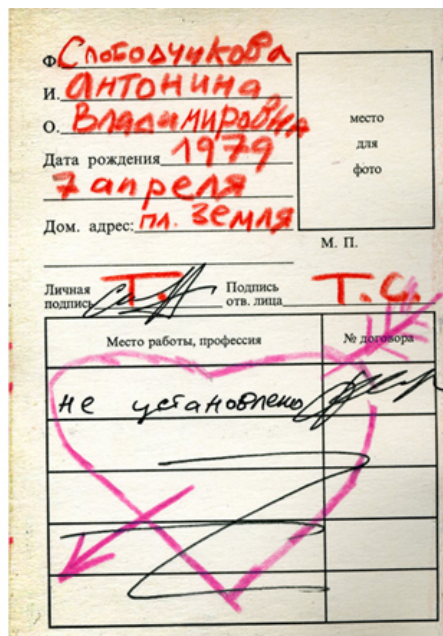 Ф. Слободчикова
И. Антонина
О. Владимировна
место
для
фото
Дата рождения 1979
7 апреля
Дом. адрес: пл. Земля
М. П.
Личная подпись Т.
Подпись отв. лица Т.С.
Место работы, профессия
№ договора
не установлено